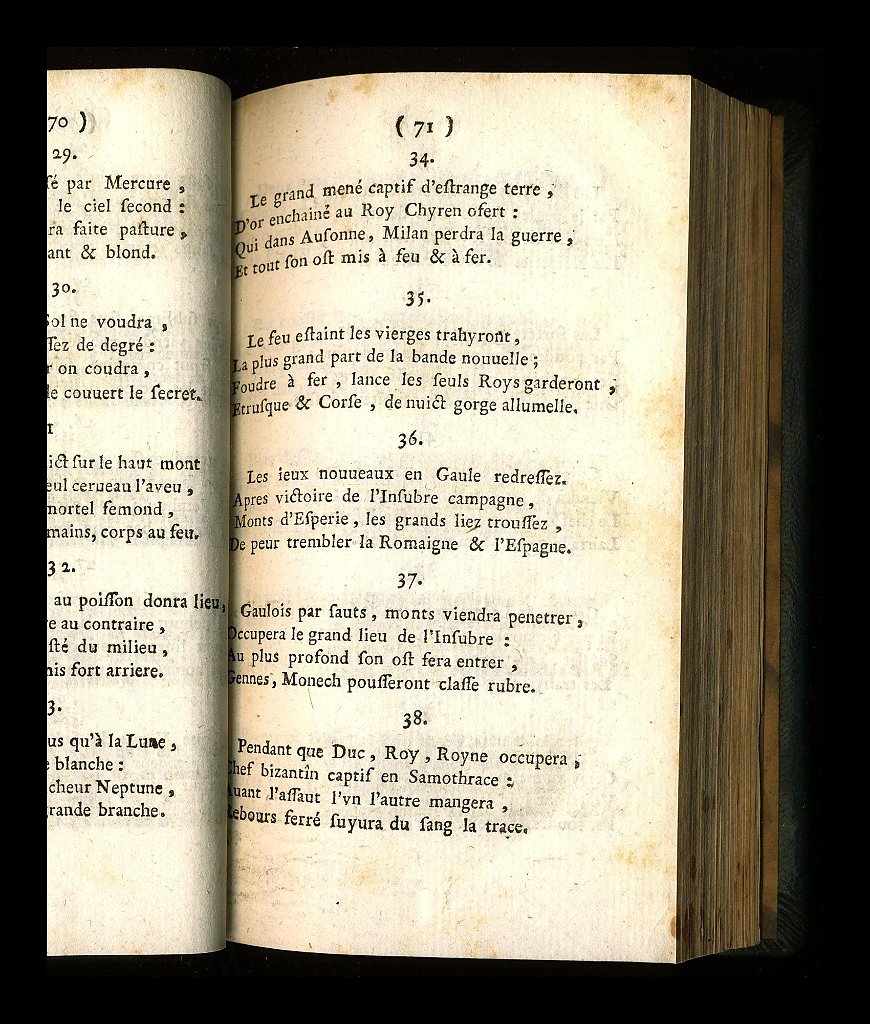 70 )
29.
ſé par Mercure ,
le ciel ſecond :
ra faite paſture ,
ant & blond.
30.
Sol ne voudra ,
ſſez de degré :
r on coudra ,
le couuert le ſecret.
1
ict ſur le haut mont
eul cerueau l'aveu ,
mortel femond ,
mains, corps au feu.
32.
au poiſſon donra lieu,
re au contraire ,
ſté du milieu ,
nis fort arriere.
3.
us qu'à la Lune ,
e blanche :
cheur Neptune ,
grande branche.
( 71 )
34.
Le grand mené captif d'eſtrange terre ,
D'or enchainé au Roy Chyren ofert :
Qui dans Auſonne, Milan perdra la guerre ,
Et tout ſon oſt mis à feu & à fer.
35.
Le feu eſtaint les vierges trahyront ,
La plus grand part de la bande nouuelle ;
Foudre à fer , lance les ſeuls Roys garderont ;
Etruſque & Corſe , de nuict gorge allumelle.
36.
Les ieux nouueaux en Gaule redreſſez.
Apres victoire de l'Inſubre campagne ,
Monts d'Eſperie, les grands liez trouſſez ,
De peur trembler la Romaigne & l'Eſpagne.
37.
Gaulois par ſauts , monts viendra penetrer ,
Occupera le grand lieu de l'Inſubre :
Au plus profond ſon oſt fera entrer ,
Gennes, Monech pouſſeront claſſe rubre.
38.
Pendant que Duc , Roy , Royne occupera ,
Chef bizantin captif en Samothrace :
Auant l'aſſaut l'vn l'autre mangera ,
Rebours ferré ſuyura du ſang la trace.